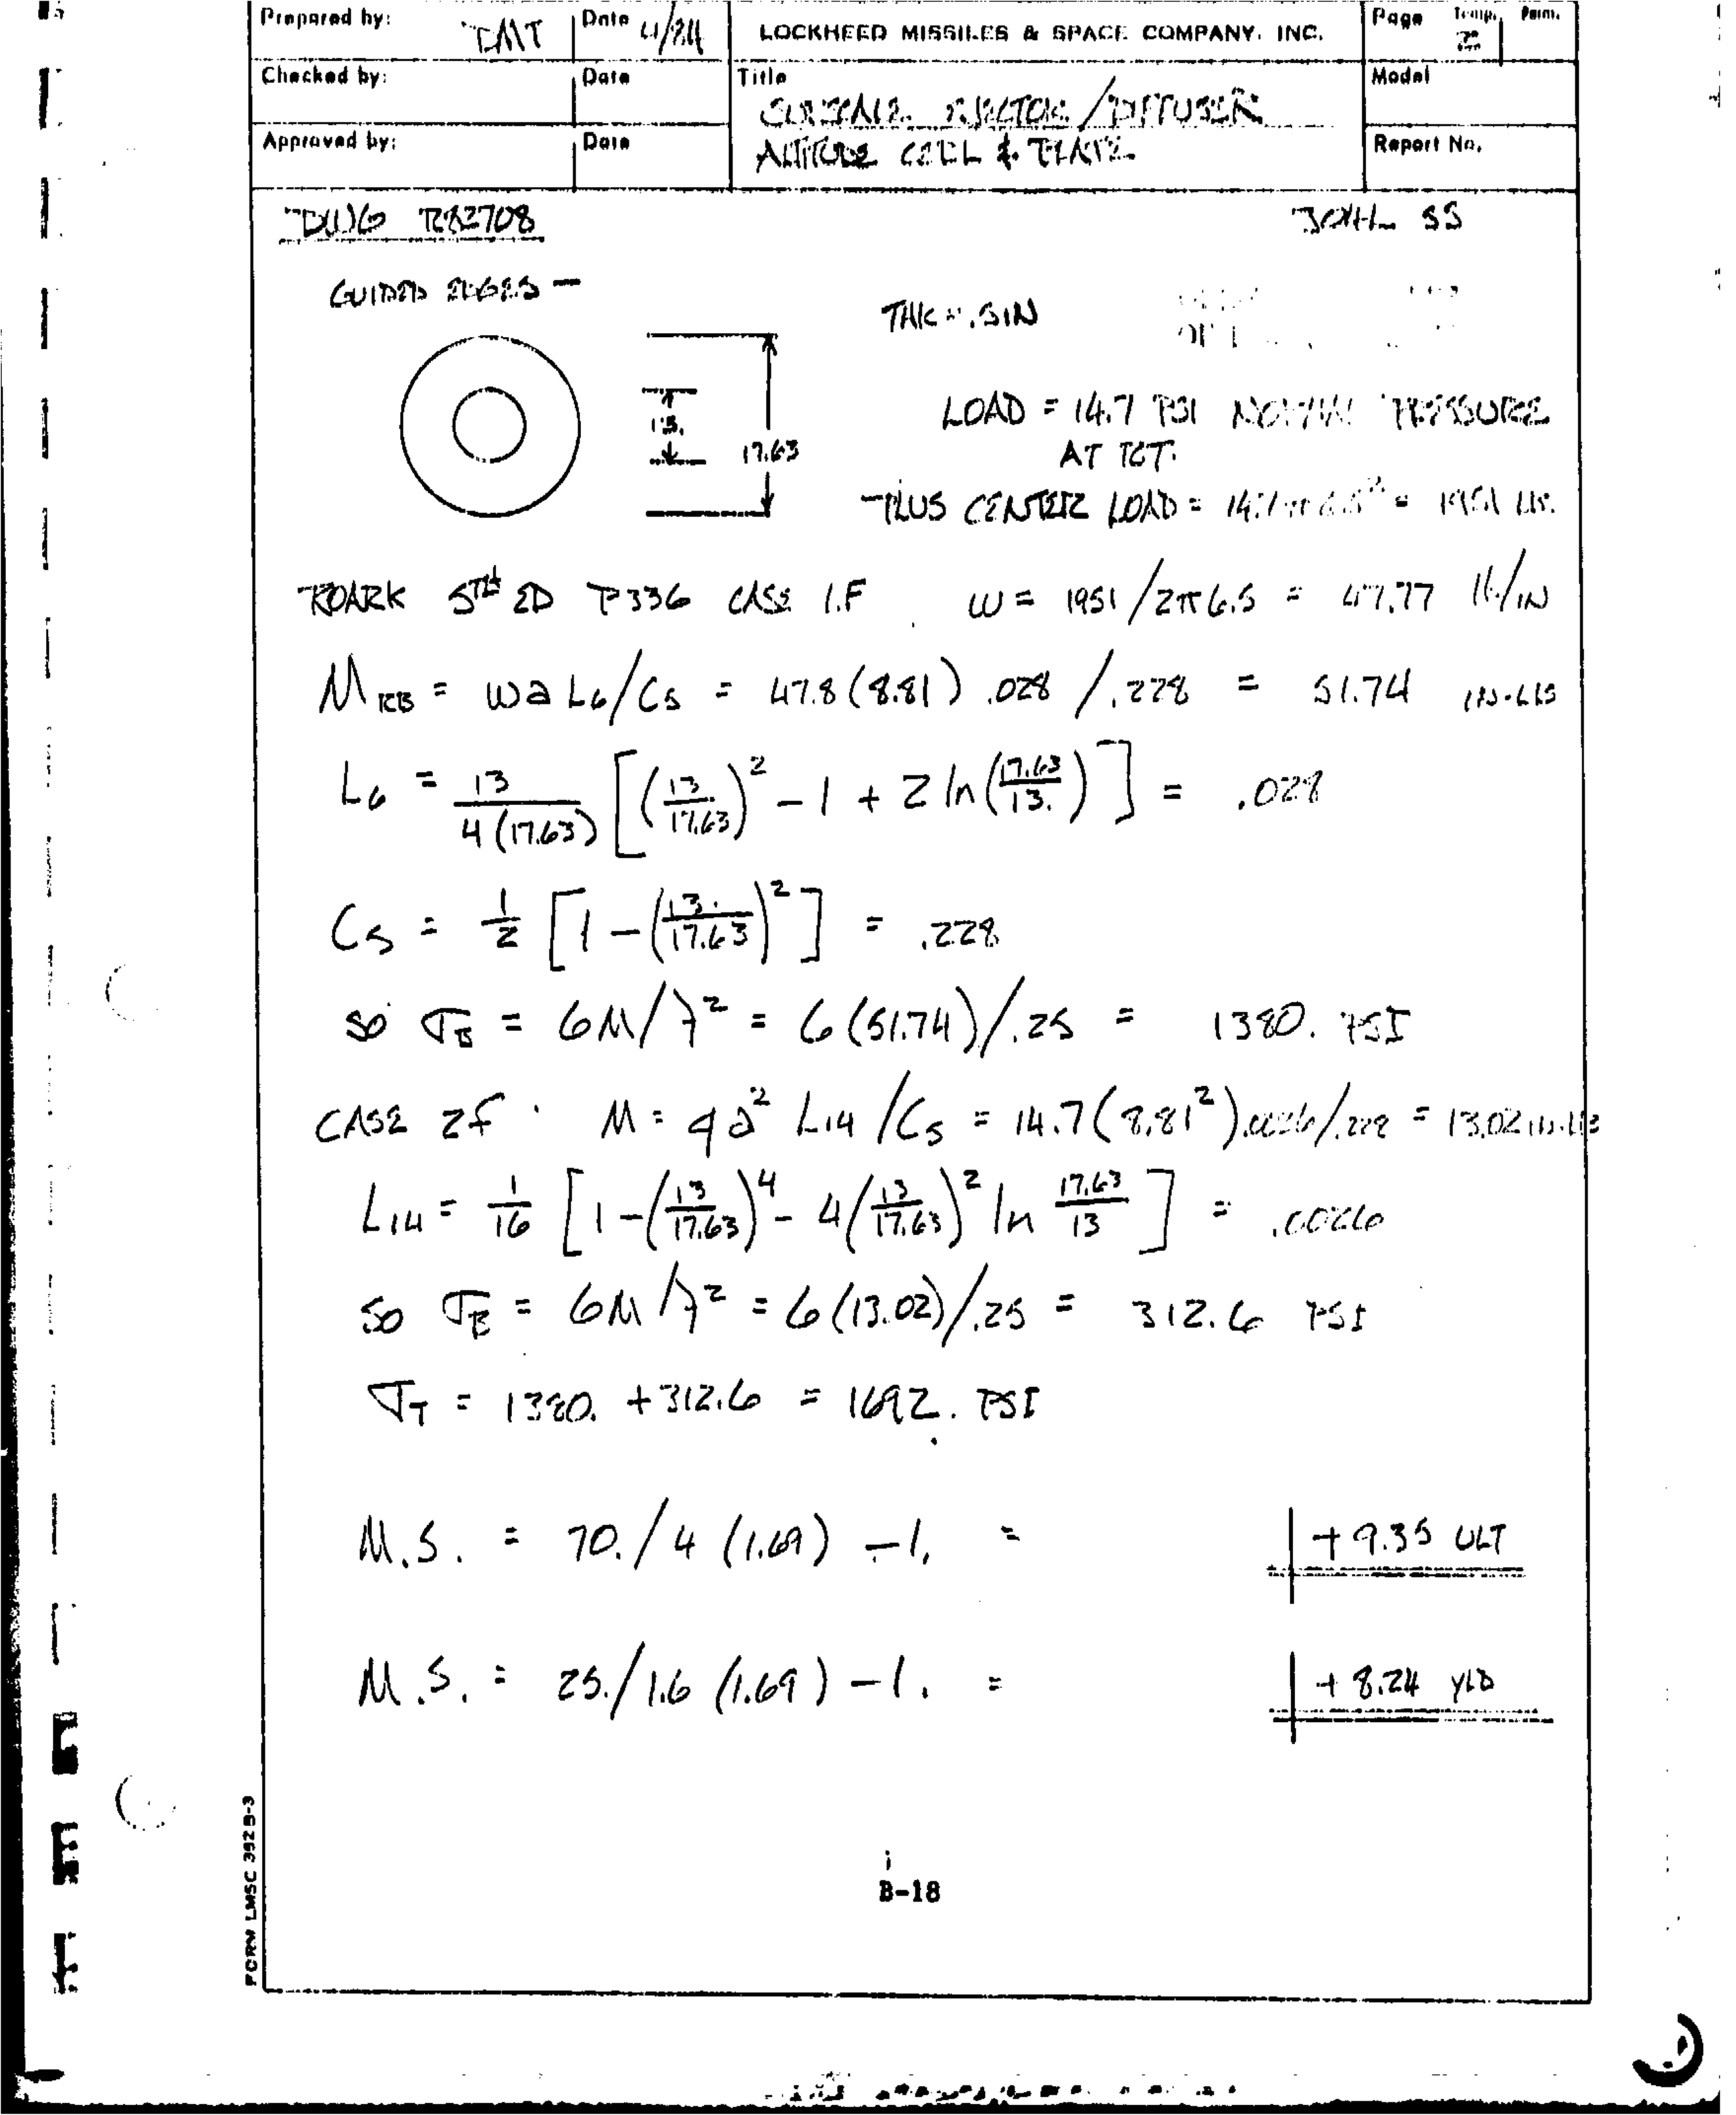 Prepared by: DMT Date 4/84 LOCKHEED MISSILES & SPACE COMPANY, INC. Page Temp. Perm.
2
Checked by: Date Title Model
SUBSCALE EJECTOR/DIFFUSER
Approved by: Date ALTITUDE CELL & PLATE Report No.
DWG R82708 304L SS
GUIDED EDGES —
THK = .5IN
13.
17.63
LOAD = 14.7 PSI NORMAL PRESSURE
AT
PLUS CENTER LOAD = 14.7π6.5² = 1951 LB.
ROARK 5TH ED P336 CASE 1.F W = 1951/2π6.5 = 47.77 lb/IN
M RB = wa L6/C5 = 47.8 (8.81) .028 / .228 = 51.74 IN-LBS
L6 = 13/4(17.63) [(13/17.63)² - 1 + 2 ln(17.63/13.)] = .028
C5 = 1/2 [1 - (13./17.63)²] = .228
SO σB = 6M/t² = 6(51.74)/.25 = 1380. PSI
CASE 2f M = qa² L14/C5 = 14.7(8.81²).0026/.228 = 13.02 IN-LB
L14 = 1/16 [1 - (13/17.63)⁴ - 4(13/17.63)² ln 17.63/13] = .0026
SO σB = 6M/t² = 6(13.02)/.25 = 312.6 PSI
σT = 1380. + 312.6 = 1692. PSI
M.S. = 70./4 (1.69) - 1. = + 9.35 ULT
M.S. = 25./1.6 (1.69) - 1. = + 8.24 YLD
FORM LMSC 392 B-3
B-18